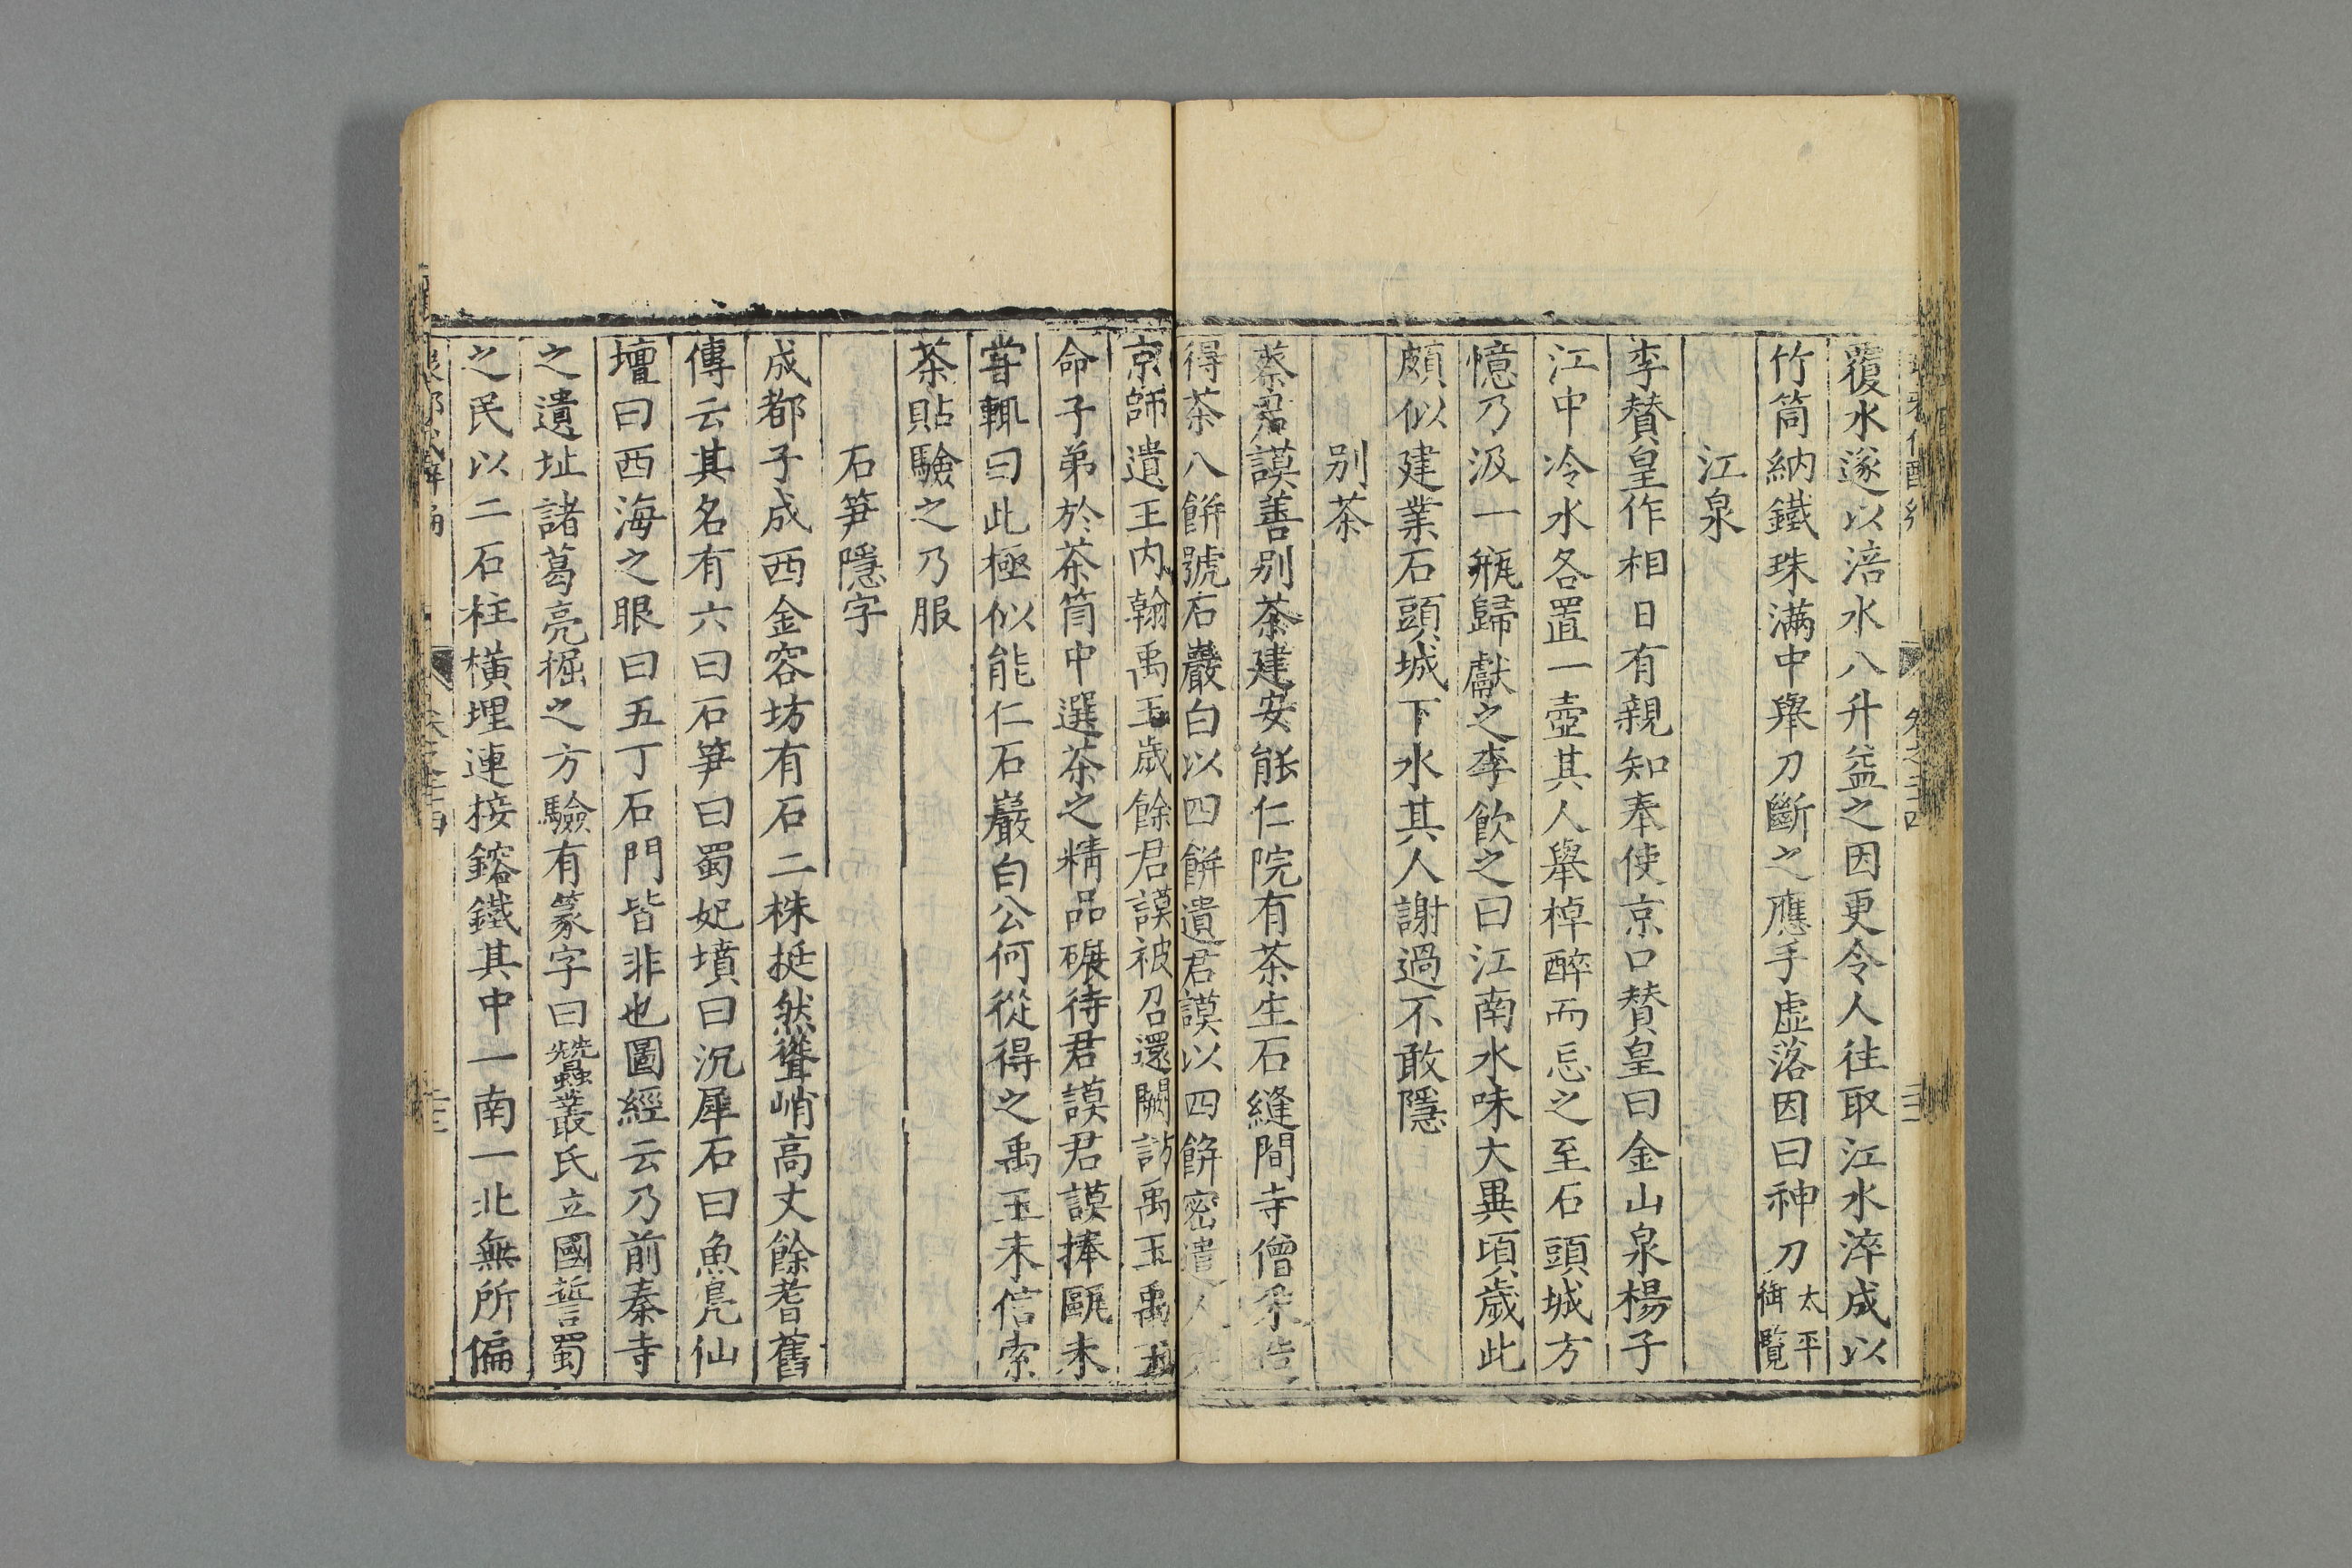 覆水遂以涪水八升益之因更令人徃取江水淬成以
竹筒納鐵珠滿中舉刀斷之應手虛落因曰神刀太平御覧
江泉
李賛皇作相日有親知奉使京口賛皇曰金山泉楊子
江中冷水各置一壺其人舉棹醉而忘之至石頭城方
憶乃汲一瓶歸獻之李飲之曰江南水味大異頃歲此
頗似建業石頭城下水其人謝過不敢隱
别茶
蔡君謨善别茶建安能仁院有茶生石縫間寺僧采造
得茶八餅號石巖白以四餅遺君謨以四餅密遣人
京師遺王内翰禹玉歲餘君謨被召還闕訪禹玉禹玉
命子弟於茶筒中選茶之精品碾待君謨君謨捧甌未
嘗輒曰此極似能仁石巖白公何從得之禹玉未信索
茶貼驗之乃服
石笋隱字
成都子成西金容坊有石二株挺然聳峭高丈餘耆舊
傳云其名有六曰石笋曰蜀妃墳曰沉犀石曰魚鳧仙
壇曰西海之眼曰五丁石門皆非也圖經云乃前秦寺
之遺址諸葛亮掘之方驗有篆字曰蠶叢氏立國誓蜀
之民以二石柱橫埋連接鎔鐵其中一南一北無所偏